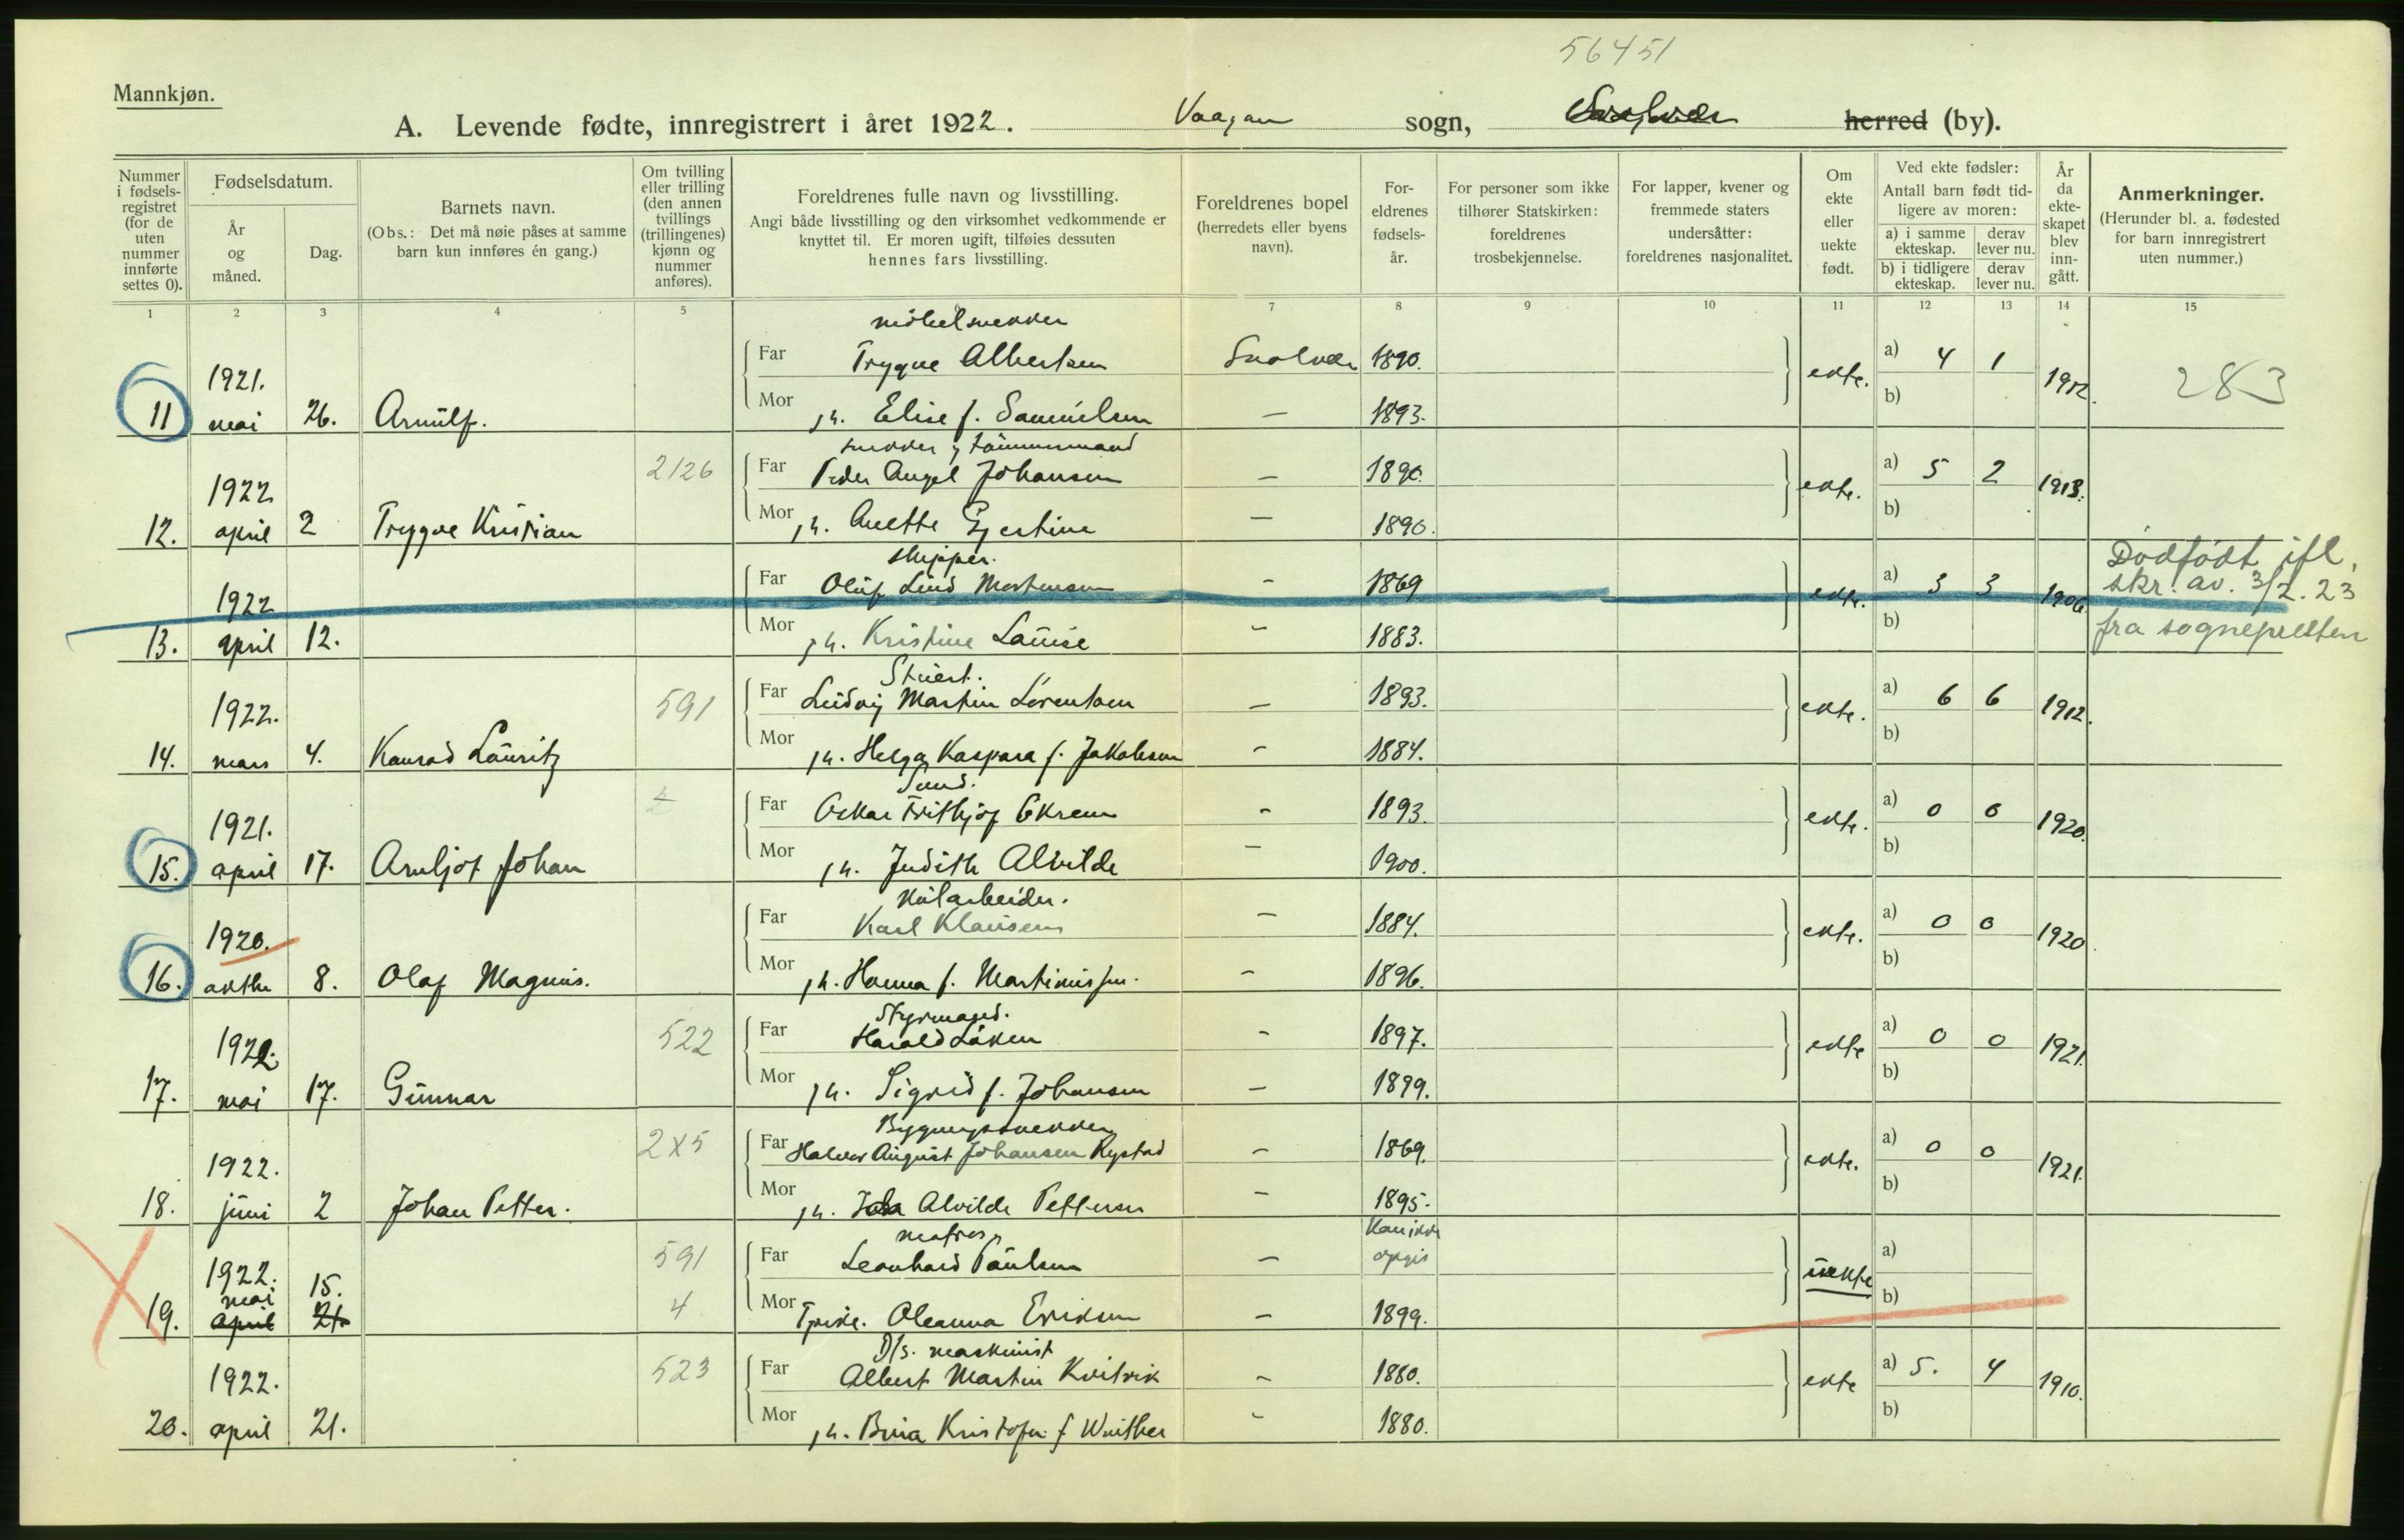 56451
Mannkjøn.
A. Levende fødte, innregistrert i året 1922. Vaagan sogn, Svolvær herred (by).
Nummer i fødsels-registret (for de uten nummer innførte settes 0).
Fødselsdatum.
År og måned.
Dag.
Barnets navn.
(Obs.: Det må nøie påses at samme barn kun innføres én gang.)
Om tvilling eller trilling (den annen tvillings (trillingenes) kjønn og nummer anføres).
Foreldrenes fulle navn og livsstilling.
Angi både livsstilling og den virksomhet vedkommende er knyttet til. Er moren ugift, tilføies dessuten hennes fars livsstilling.
Foreldrenes bopel (herredets eller byens navn).
For-eldrenes fødsels-år.
For personer som ikke tilhører Statskirken: foreldrenes trosbekjennelse.
For lapper, kvener og fremmede staters undersåtter: foreldrenes nasjonalitet.
Om ekte eller uekte født.
Ved ekte fødsler: Antall barn født tid-ligere av moren:
a) i samme ekteskap.
derav lever nu.
b) i tidligere ekteskap.
derav lever nu.
År da ekte-skapet blev inn-gått.
Anmerkninger.
(Herunder bl. a. fødested for barn innregistrert uten nummer.)
1 2 3 4 5 6 7 8 9 10 11 12 13 14 15
møbelsnekker
Far Trygve Albertsen Svolvær 1890. a) 4 1
1921. ekte. 1912. 283
11 mai 26. Arnulf. Mor h. Elise f. Samuelsen – 1893. b)
snekker & tømmermand
2126 Far Peder Angel Johansen – 1890. a) 5 2
1922 ekte. 1913.
12. april 2 Trygve Kristian Mor h. Anette – 1890. b)
skipper.
Far Oluf Lind Mortensen – 1869 a) 3 3
1922 ekte. 1906.
Dødfødt ifl.
skr. av. 3/2. 23
fra sognepresten
13. april 12. Mor h. Kristine Louise – 1883. b)
Stuert.
591 Far Ludvig Martin Lorentsen – 1893. a) 6 6
1922. ekte. 1912.
14. mars 4. Konrad Lauritz Mor h. Helga Kaspara f. Jakobsen – 1884. b)
Far Oskar Frithjof Ekrem – 1893. a) 0 0
1921. ekte. 1920.
15. april 17. Arnljot Johan Mor h. Judith Alvilde – 1900. b)
Kularbeider.
Far Karl Klausen – 1884. a) 0 0
1920. ekte. 1920.
16. oktbr 8. Olaf Magnus. Mor h. Hanna f. Martinussen. – 1896. b)
Styrmand.
522 Far Harald Løken – 1897. a) 0 0
1922. ekte 1921.
17. mai 17. Gunnar Mor h. Sigrid f. Johansen – 1899. b)
Bygningssnekker
2x5 Far Halvor August Johansen Rystad – 1869. a) 0 0
1922. ekte. 1921.
18. juni 2 Johan Petter. Mor h. Ida Alvilde Pettersen – 1895. b)
matros
591 Far Leonhard Paulsen – Kan ikke opgis a)
1922. mai 15. uekte
19. april 21. 4 Mor Tpike. Oleanna Eriksen – 1899. b)
D/s. maskinist
523 Far Albert Martin Kvitvik – 1880. a) 5. 4
1922. ekte 1910.
20. april 21. Mor h. Brina Kristofa f Winther – 1880. b)